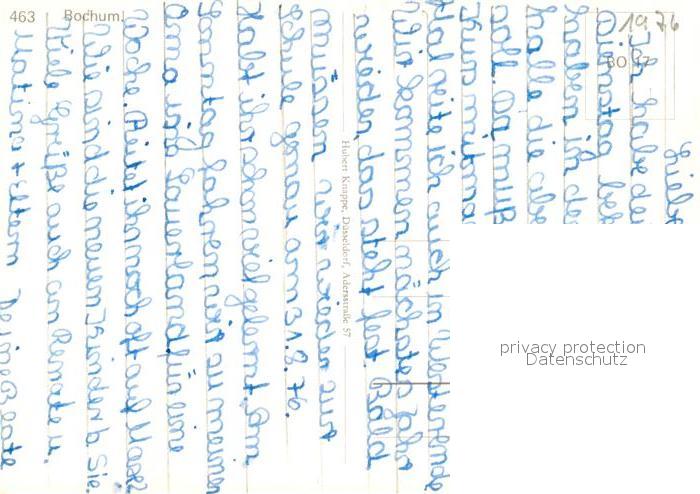 463 Bochum
1976
BO 17
Hubert Knappe, Düsseldorf, Adersstraße 57
Liebe
Ich habe de
Dienstag be
haben ich de
halle die abe
adl. Da muß
Turn mitma
Mal reite ich auch in Westerende
Wir kommen nächstes Jahr
wieder, das steht fest. Bald
müssen wir wieder zur
Schule genau am 31.8.76.
Habt ihr schon viel gelernt. Am
Samstag fahren wir zu meiner
Oma ins Sauerland für eine
Woche. Reitet ihr noch oft auf
Wie sind die neuen Kinder b. Sie.
Viele Grüße auch an Renate u.
Martina + Eltern Deine Beate
privacy protection
Datenschutz